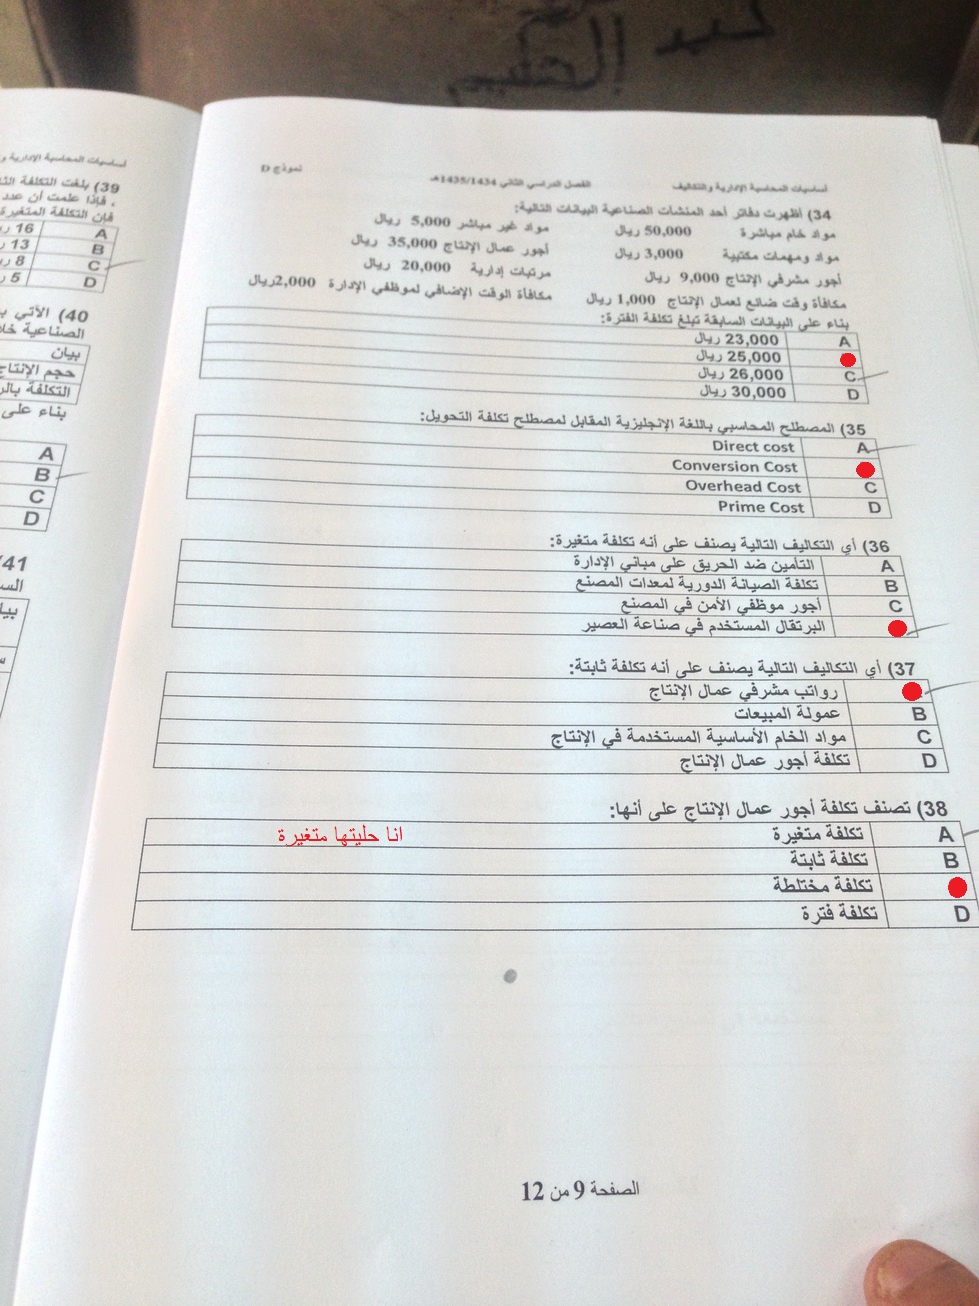 عبد
أساسيات المحاسبة الإدارية والتكاليف
الفصل الدراسي الثاني 1435/1434هـ
نموذج D
34) أظهرت دفاتر أحد المنشآت الصناعية البيانات التالية:
مواد خام مباشرة 50,000 ريال مواد غير مباشر 5,000 ريال
مواد ومهمات مكتبية 3,000 ريال أجور عمال الإنتاج 35,000 ريال
أجور مشرفي الإنتاج 9,000 ريال مرتبات إدارية 20,000 ريال
مكافأة وقت ضائع لعمال الإنتاج 1,000 ريال مكافأة الوقت الإضافي لموظفي الإدارة 2,000ريال
بناء على البيانات السابقة تبلغ تكلفة الفترة:
A 23,000 ريال
25,000 ريال
C 26,000 ريال
D 30,000 ريال
35) المصطلح المحاسبي باللغة الإنجليزية المقابل لمصطلح تكلفة التحويل:
A Direct cost
Conversion Cost
C Overhead Cost
D Prime Cost
36) أي التكاليف التالية يصنف على أنه تكلفة متغيرة:
A التأمين ضد الحريق على مباني الإدارة
B تكلفة الصيانة الدورية لمعدات المصنع
C أجور موظفي الأمن في المصنع
البرتقال المستخدم في صناعة العصير
37) أي التكاليف التالية يصنف على أنه تكلفة ثابتة:
رواتب مشرفي عمال الإنتاج
B عمولة المبيعات
C مواد الخام الأساسية المستخدمة في الإنتاج
D تكلفة أجور عمال الإنتاج
38) تصنف تكلفة أجور عمال الإنتاج على أنها:
A تكلفة متغيرة انا حليتها متغيرة
B تكلفة ثابتة
تكلفة مختلطة
D تكلفة فترة
الصفحة 9 من 12
أساسيات المحاسبة الإدارية و
39) بلغت التكلفة
، فإذا علمت أن عدد
فإن التكلفة المتغيرة
A 16
B 13
C 8
D 5
40) الآتي
الصناعية
بيان
حجم الإنتاج
التكلفة
بناء على
A
B
C
D
41